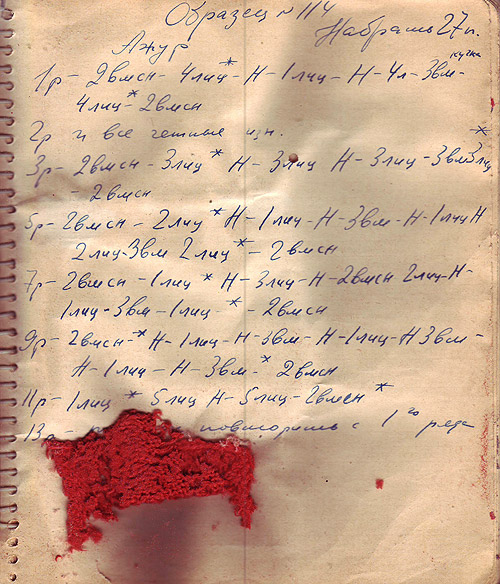 Образец № 114
Набрать 27 п.
Ажур
кучка
1р – 2вмсн – 4лиц * – Н – 1лиц – Н – 4л – 3вм –
4лиц * – 2вмсн
2р и все четные изн.
3р – 2вмсн – 3лиц * Н – 3лиц Н – 3лиц – 3вм 3лиц *
– 2вмсн
5р – 2вмсн – 2лиц * Н – 1лиц – Н – 3вм – Н – 1лиц Н
2лиц – 3вм 2лиц * – 2вмсн
7р – 2вмсн – 1лиц * Н – 3лиц – Н – 2вмсн 2лиц – Н –
1лиц – 3вм – 1лиц – * – 2вмсн
9р – 2вмсн – * Н – 1лиц – Н – 3вм – Н – 1лиц – Н 3вм –
Н – 1лиц – Н – 3вм – * 2вмсн
11р – 1лиц * 5лиц Н – 5лиц – 2вмсн *
13р – повторить с 1го ряда